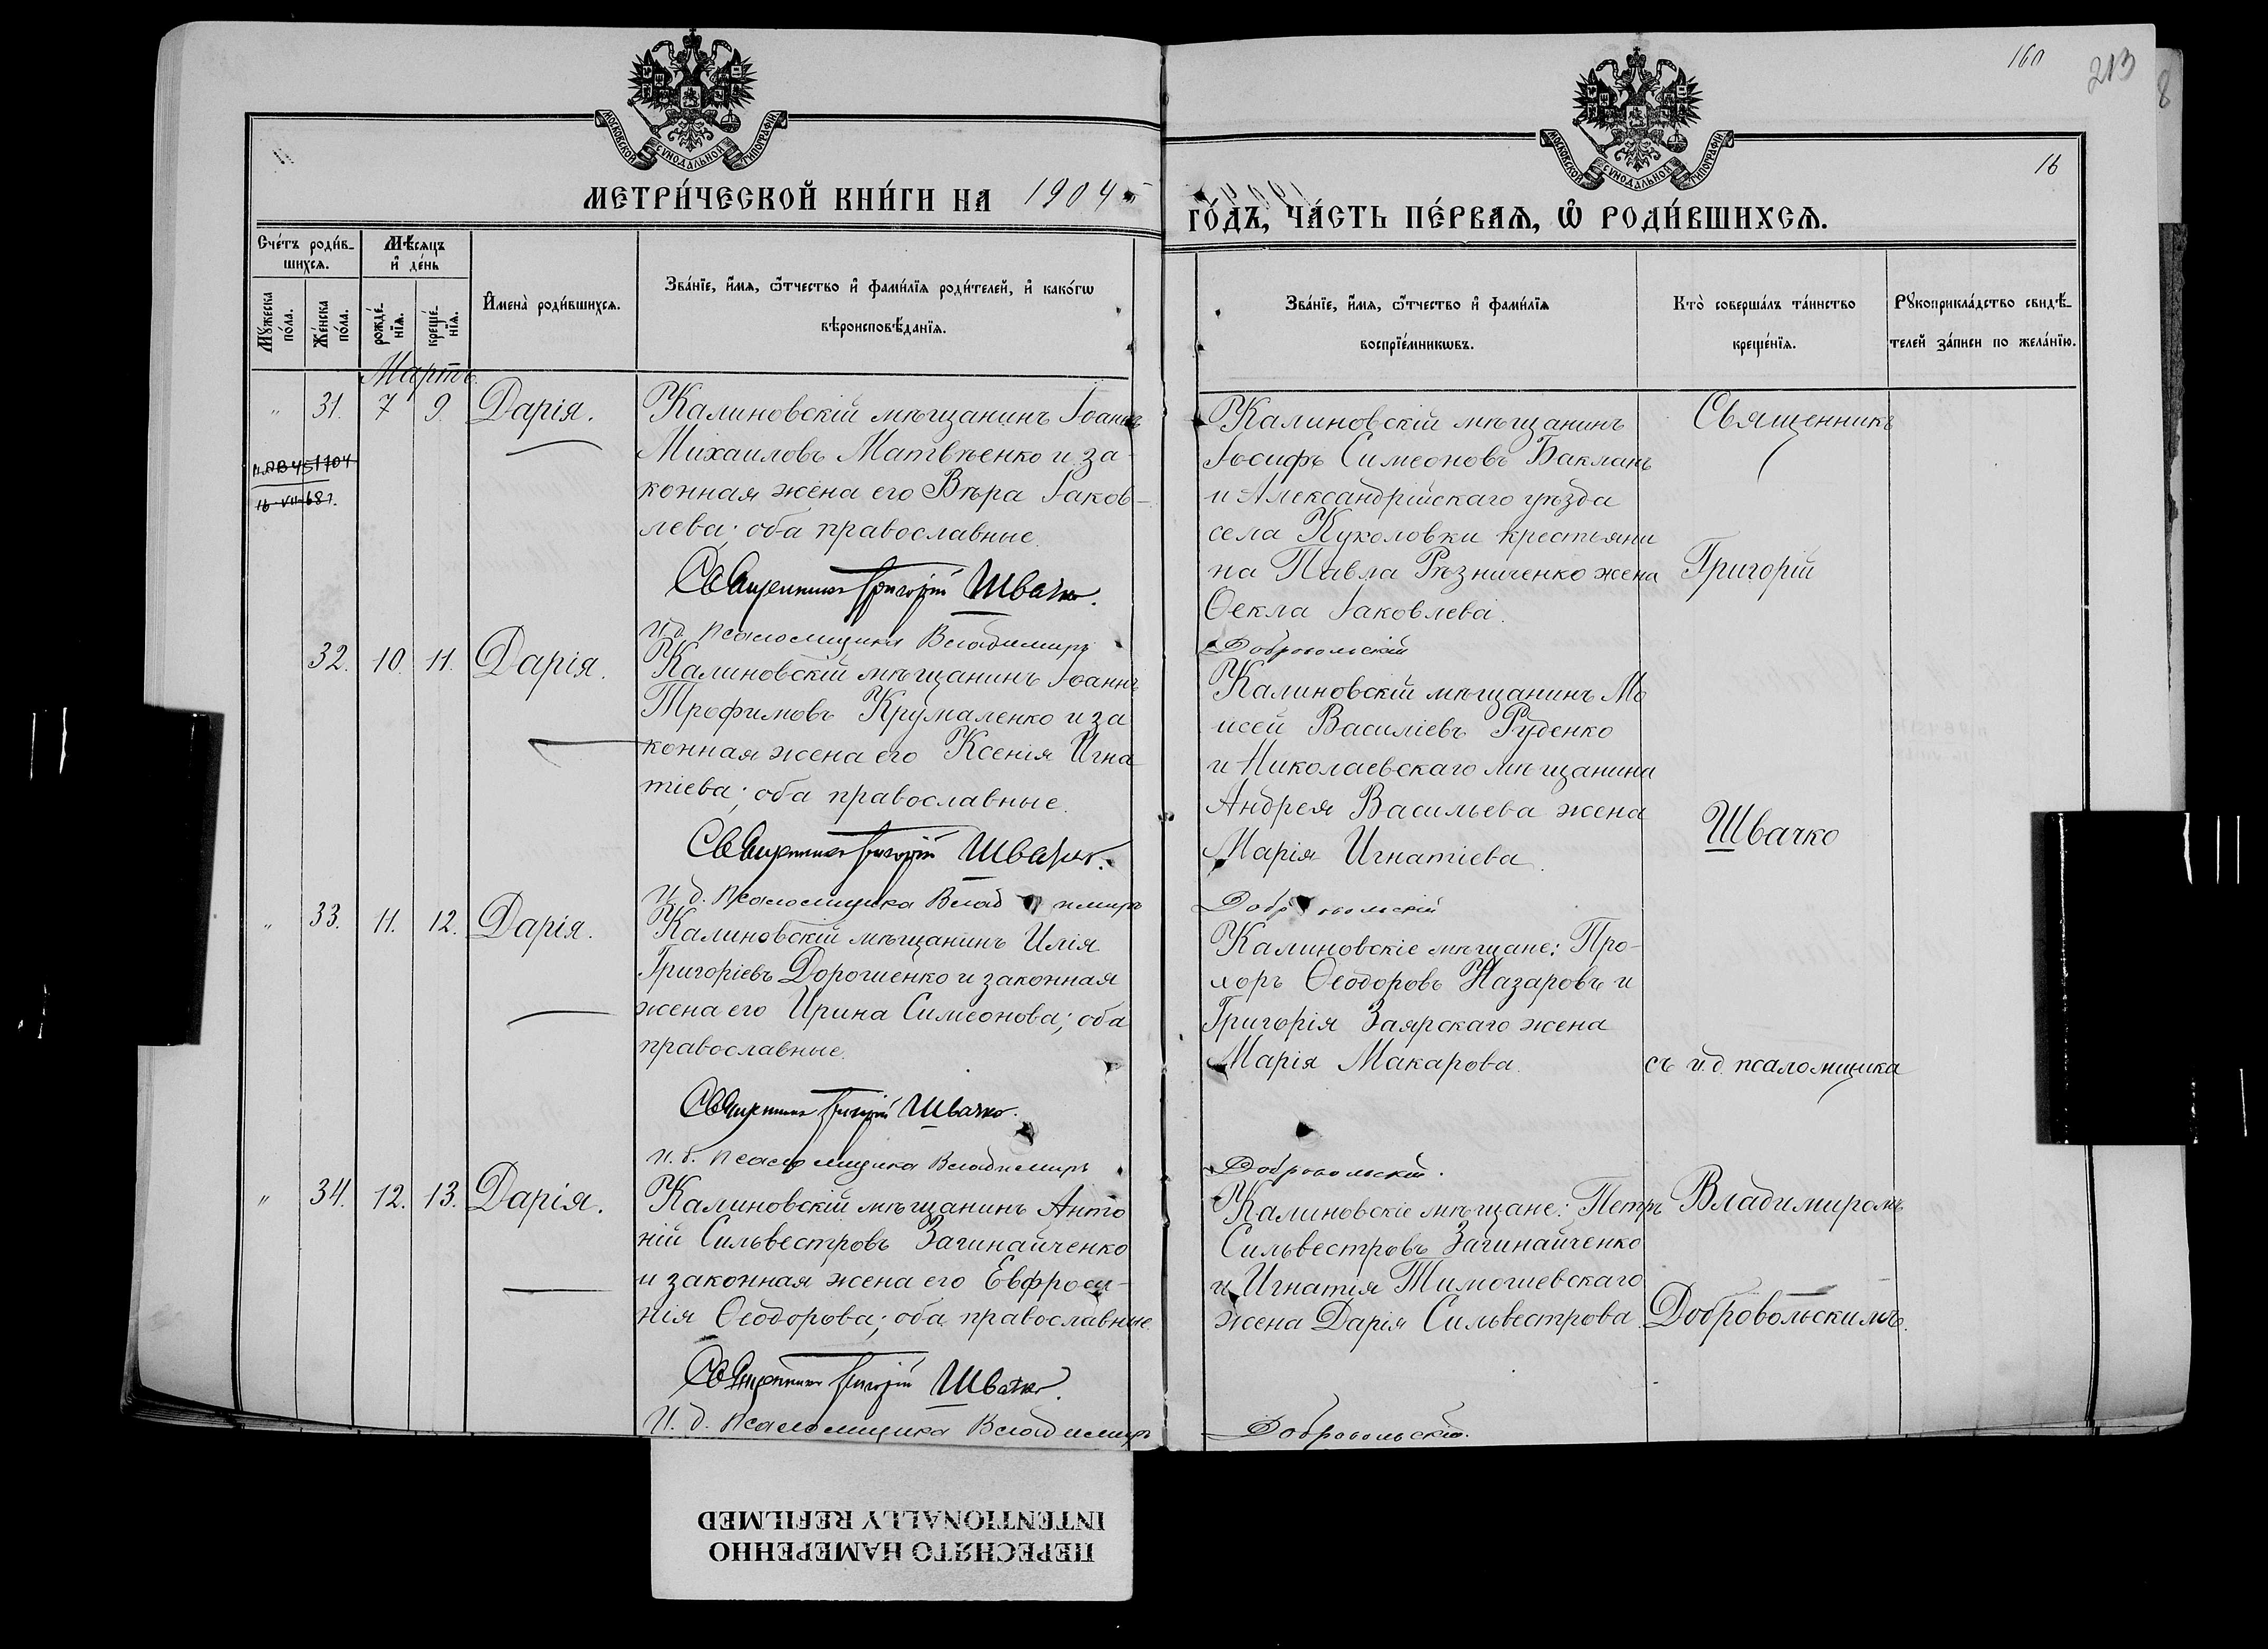 160
213
8
16
МОСКОВСКОЙ СУНОДАЛЬНОЙ ТИПОГРАФІИ
МОСКОВСКОЙ СУНОДАЛЬНОЙ ТИПОГРАФІИ
МЕТРИ́ЧЕСКОЙ КНИ́ГИ НА 1904
ГО́ДЪ, ЧА́СТЬ ПЕ́РВАѦ, Ѡ҆ РОДИ́ВШИХСѦ.
Сче́тъ роди́в-
шихсѧ.
Мѣ́сѧцъ
и҆ де́нь
Мꙋ́жеска
по́ла.
Же́нска
по́ла.
рожде́-
нїѧ.
креще́-
нїѧ.
И҆мена̀ роди́вшихсѧ.
Зва́нїе, и҆́мѧ, ѻ҆́тчество и҆ фами́лїѧ роди́телей, и҆ како́гѡ
вѣроисповѣ́данїѧ.
Зва́нїе, и҆́мѧ, ѻ҆́тчество и҆ фами́лїѧ
воспрїе́мникѡвъ.
Кто̀ соверша́лъ та́инство
креще́нїѧ.
Рꙋкоприкла́дство свидѣ́-
телей за́писи по жела́нїю.
Мартъ.
" 31. 7 9. Дарія.
Калиновскій мѣщанинъ Іоаннъ
Михаиловъ Матвѣенко и за-
конная жена его Вѣра Іаков-
лева; оба православные.
Священникъ Григорій Швачко.
И. д. Псаломщика Владимиръ
Калиновскій мѣщанинъ
Іосифъ Симеоновъ Бакланъ
и Александрійскаго уѣзда
села Куколовки крестьяни
на Павла Рѣзниченко жена
Ѳекла Іаковлева.
Добровольскій
Священникъ
Григорій
Швачко
съ и. д. псаломщика
Владимиромъ
Добровольскимъ.
32. 10. 11. Дарія.
Калиновскій мѣщанинъ Іоаннъ
Трофимовъ Крумаленко и за
конная жена его Ксенія Игна
тіева; оба православные.
Священникъ Григорій Швачко.
И. д. Псаломщика Владимиръ
Калиновскій мѣщанинъ Мо
исей Василіевъ Руденко
и Николаевскаго мѣщанина
Андрея Васильева жена
Марія Игнатіева.
Добровольскій
" 33. 11. 12. Дарія.
Калиновскій мѣщанинъ Илія
Григоріевъ Дорошенко и законная
жена его Ирина Симеонова; оба
православные.
Священникъ Григорій Швачко.
И. д. Псаломщика Владимиръ
Калиновскіе мѣщане: Про-
хоръ Ѳеодоровъ Назаровъ и
Григорія Заярскаго жена
Марія Макарова.
Добровольскій.
" 34. 12. 13. Дарія.
Калиновскій мѣщанинъ Анто
ній Сильвестровъ Загинайченко
и законная жена его Евфроси-
нія Ѳеодорова; оба православные
Священникъ Григорій Швачко.
И. д. Псаломщика Владимиръ
Калиновскіе мѣщане: Петръ
Сильвестровъ Загинайченко
и Игнатія Тимошевскаго
жена Дарія Сильвестрова.
Добровольскій.
ПЕРЕСНЯТО НАМЕРЕННО
INTENTIONALLY REFILMED